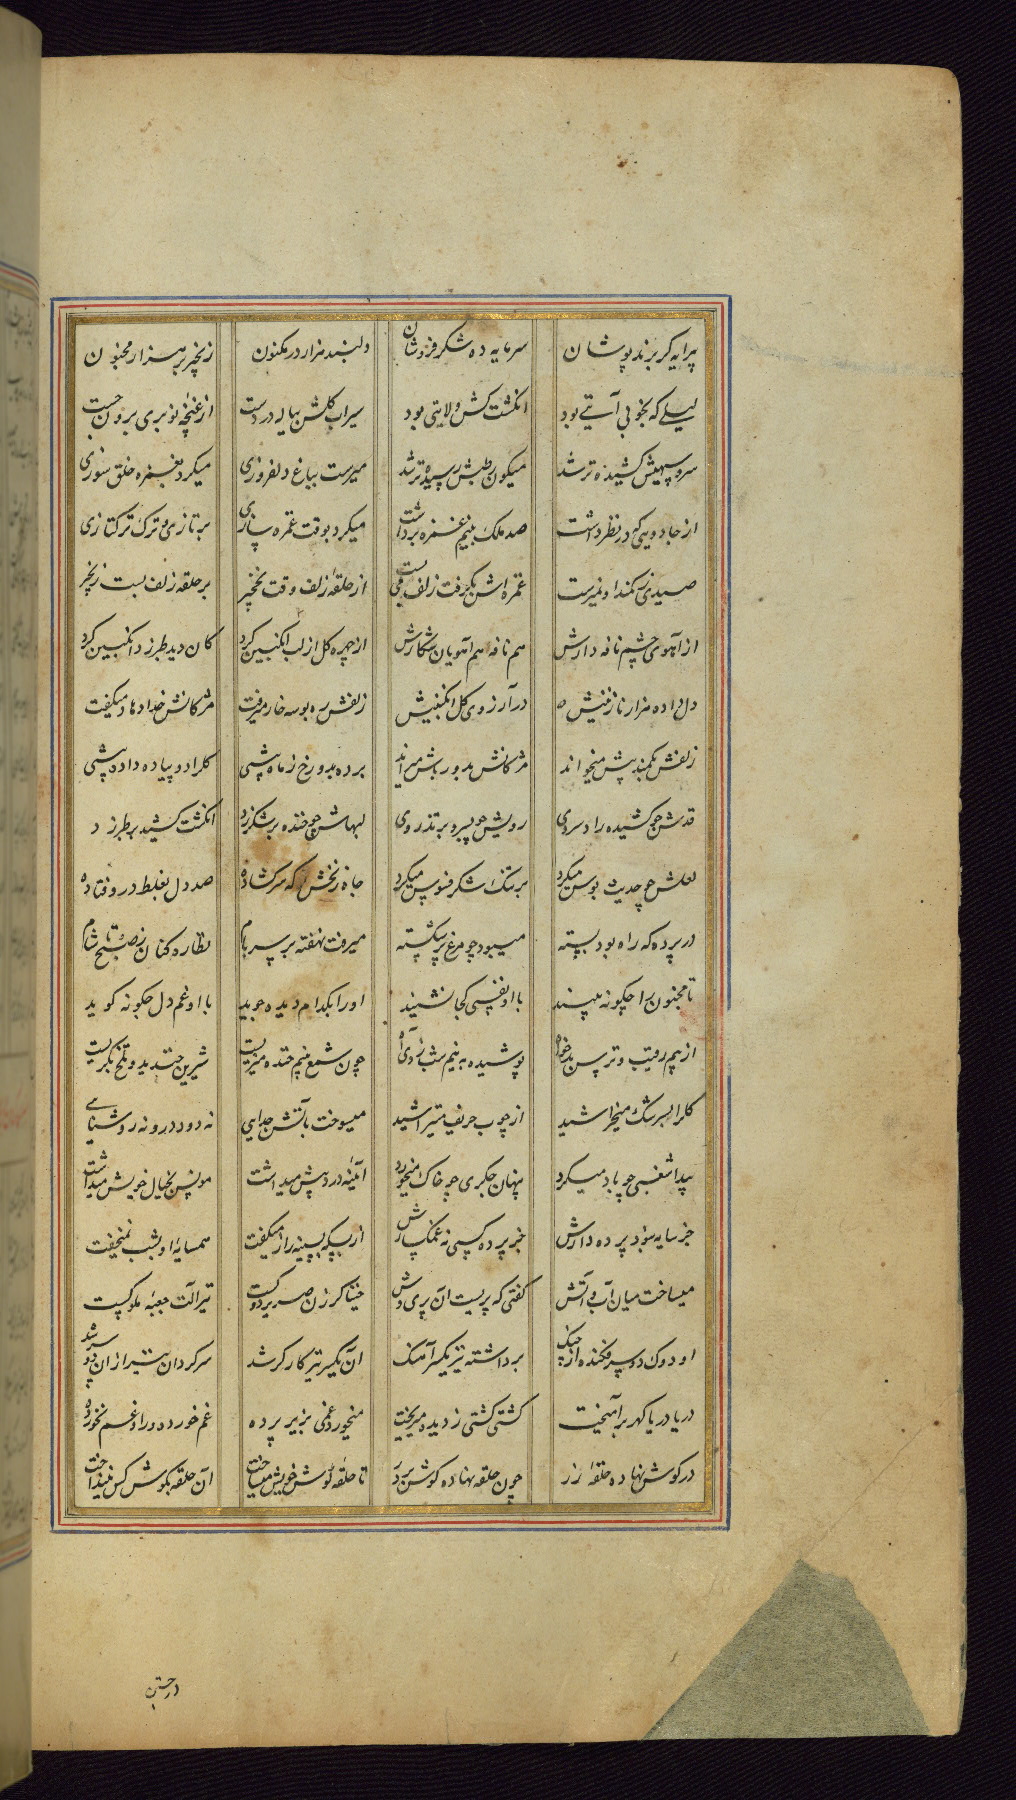 پیرایه گر پرند پوشان سرمایه ده شکر فروشان دلبند هزار در مکنون زنجیر بر هزار مجنون
لیلی که بخوبی آیتی بود انگشت کش ولایتی بود سیراب گلش پیاله در دست از غنچه نو بری برون جست
سرو سهیش کشیده تر شد میگون رطبش رسیده تر شد میرست بباغ دلفروزی میکرد بغمزه خلق سوزی
از جادویی که در نظر داشت صد ملک بنیم غمزه برداشت میکرد بوقت غمزه سازی بر تازی و ترک ترکتازی
صیدی ز کمند او نمیرست غمزه اش بگرفت زلف می بست از حلقه زلف وقت نخچیر بر حلقه زلف بست زنجیر
از آهوی چشم نافه دارش هم نافه هم آهوان شکارش از چهره گل از لب انگبین کرد کان دید طبرزد انگبین کرد
دل داده هزار نازنینش در آرزوی گل انگبینش زلفش ره بوسه خار میرفت مژگانش خدا دهاد میگفت
زلفش بکمند پیش میخواند مژگانش بدور باش میراند برده بدو رخ ز ماه پیشی گل را دو پیاده داده پیشی
قدش چو کشیده زاد سروی رویش چو بسرو بر تذروی لبهاش چو خنده بر شکر زد انگشت کشید بر طبرزد
لعلش چو حدیث بوس میکرد بر تنگ شکر فسوس میکرد چاه زنخش که سر گشاده صد دل بغلط درو فتاده
در پرده که راه بود بسته میبود چو مرغ پر شکسته میرفت نهفته بر سر بام نظاره کنان ز صبح تا شام
تا مجنون را چگونه بیند با او نفسی کجا نشیند او را بکدام دیده جوید با او غم دل چگونه گوید
از بیم رقیب و ترس بدخواه پوشیده به نیم شب زدی آه چون شمع بنیم خنده میزیست شیرین خندید و تلخ بگریست
گل را بسرشک میخراشید از چوب حریف میتراشید میسوخت بآتش جدایی نه دود درو نه روشنایی
پیدا شغبی چو باد میکرد پنهان جگری چو خاک میخورد آیینه درد پیش میداشت مونس بخیال خویش میداشت
جز سایه نبود پرده دارش جز پرده کسی نه غمگسارش از بسکه بسینه راز میگفت همسایه او بشب نمیخفت
میساخت میان آب و آتش گفتی که پریست آن پری وش خنیاگر زن صریر دوکست تیر آلت جعبه ملوکست
او دوک دو سر فکنده از چنگ برداشته تیر یکسر آهنگ آن یکسر تیر کارگر شد سرگردان تیر از آن دو سر شد
دریا دریا گهر برآمیخت کشتی کشتی ز دیده میریخت میخورد غمی بزیر پرده غم خورده ورا و غم نخورده
در گوش نهاده حلقه زر چون حلقه نهاده گوش بر در تا حلقه گوش خویش میساخت آن حلقه بگوش کس نینداخت
در جستن